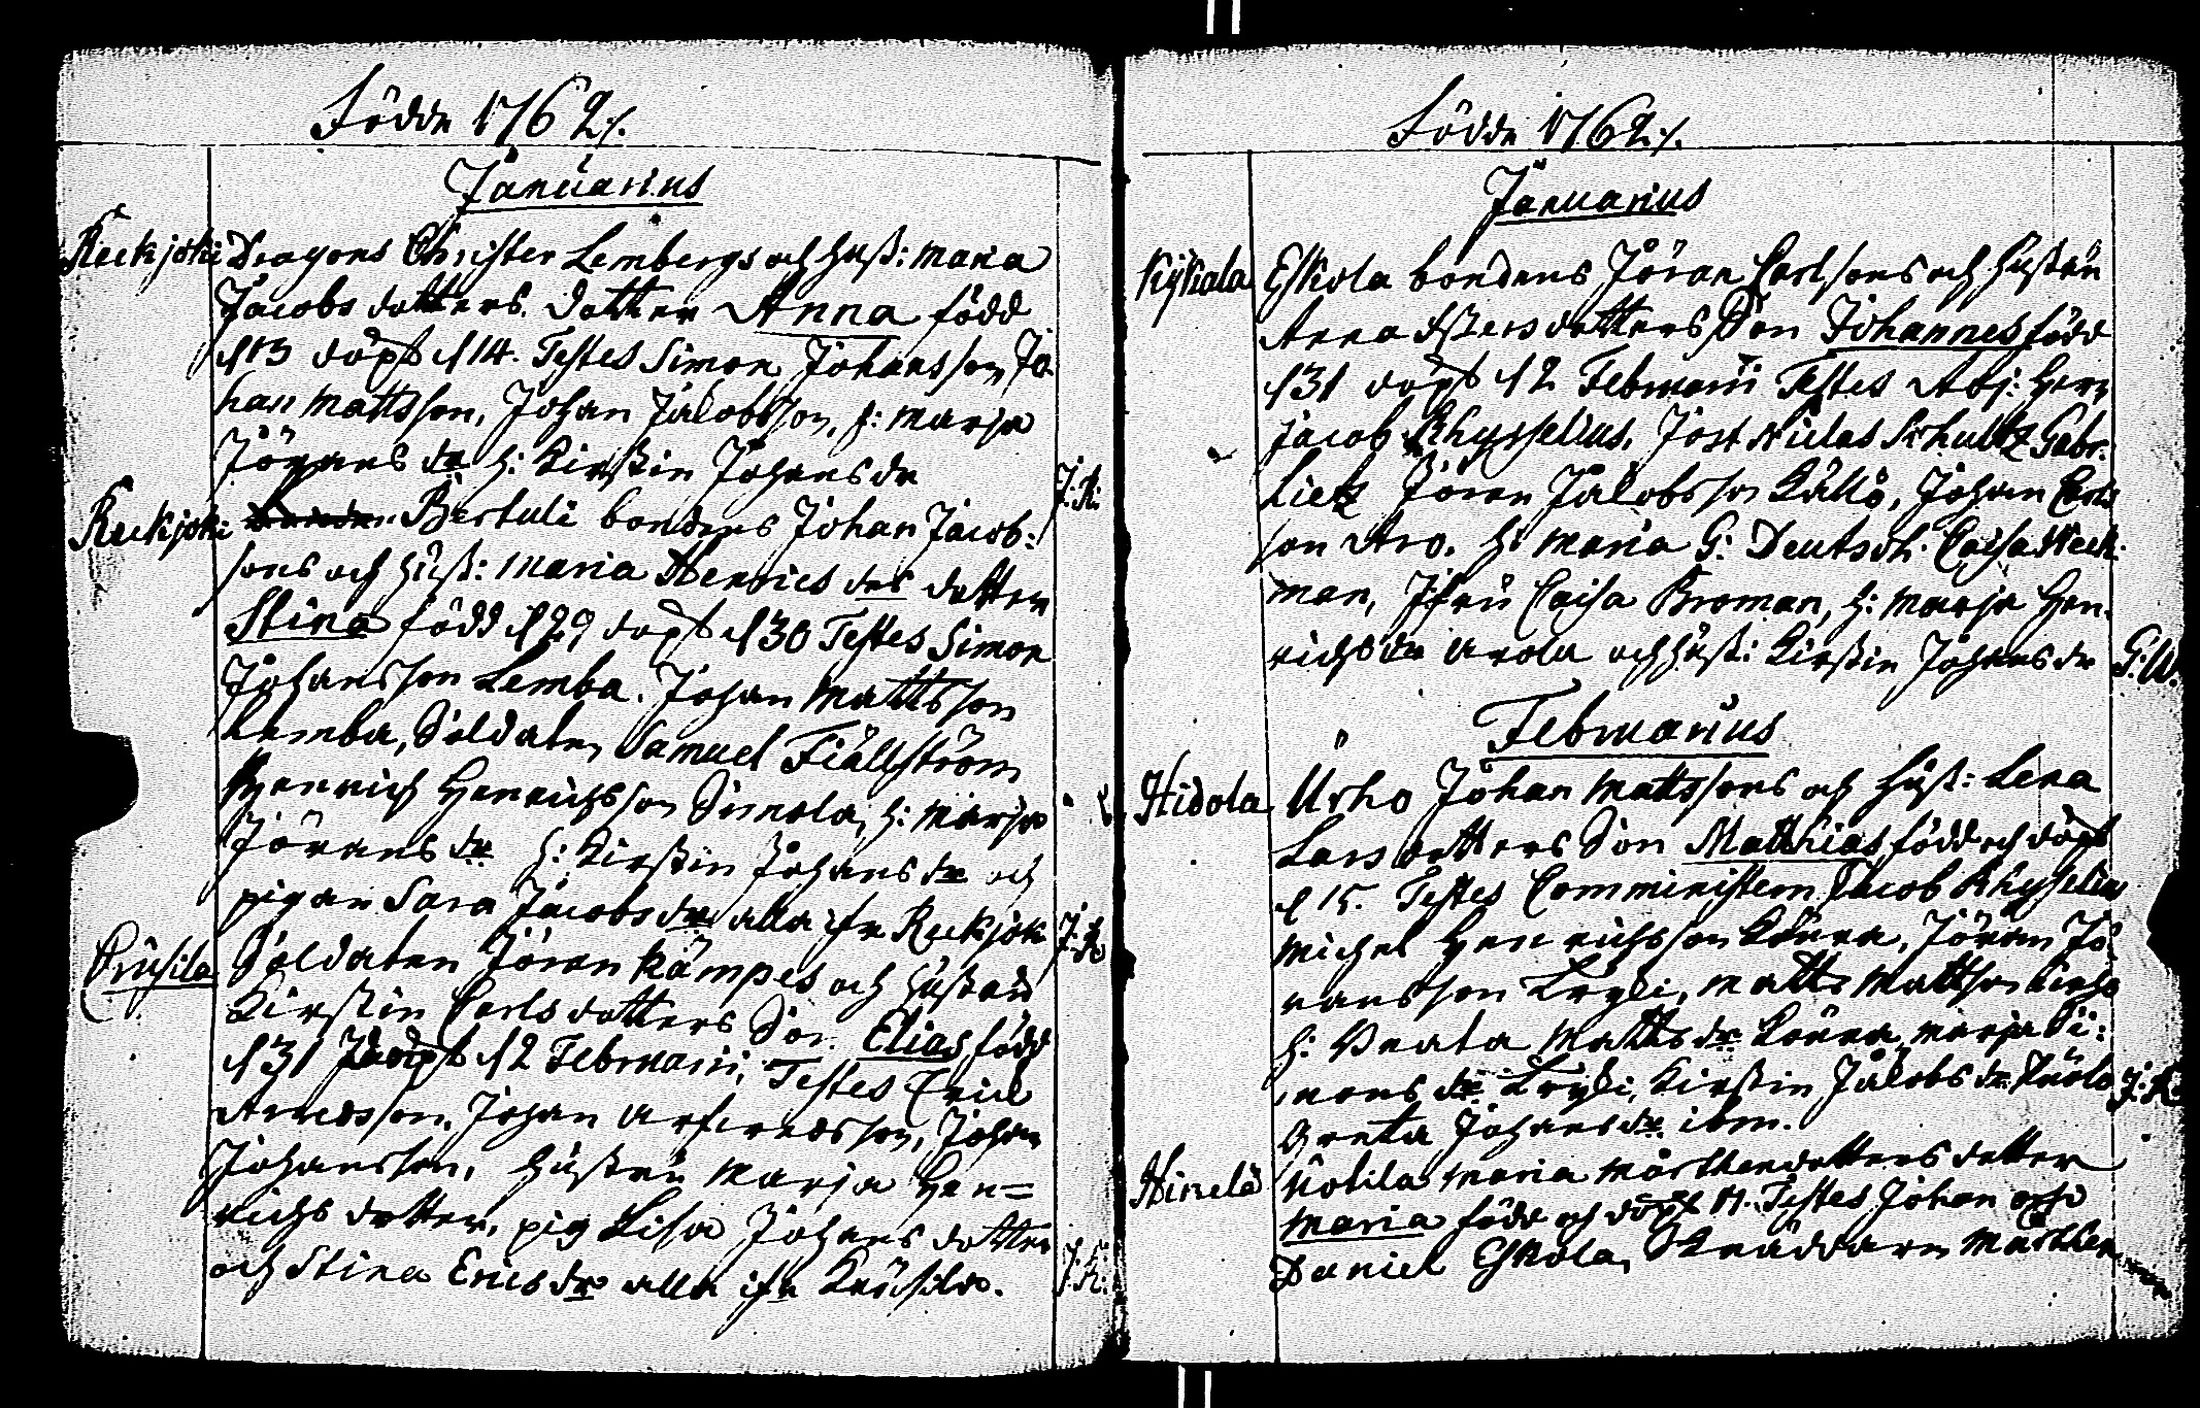 Födde 1762 ⁒.
Januarius
Reckjoki Dragons Christer Lembergs och hust: Maria
Jacobs dotters dotter Anna född
d 13 döpt d 14. Testes Simon Johansson Jo-
han Mattsson, Johan Jacobsson, h: Marja
Jörans dr h: Kirstin Johans dr J: R:
Reckjoki Bertuli bondens Johan Jacob:
sons och hust: Maria Henrics drs dotter
Stina född d 29 döpt d 30 Testes Simon
Johansson Lemba. Johan Mattsson
Lemba, Soldaten Samuel Fiällström
Henrich Henrichsson Simola, h: Marja
Jörans dr h: Kirstin Johans dr och
pigan Sara Jacobs dr alla ifr Reckjok J: R
Krusila Soldaten Jöran Kämpes och hustrus
Kirstin Carls dotters Son Elias född
d 31 döpt d 2 Februarii, Testes Eric
Johan Arfvedsson, Johan
Johansson, hustru Marja Hen=
richs dotter, pig Lisa Johans dotter
och Stina Erics dr alla ifr Kruusila. J: R:
Födde 1762 ⁒.
Januarius
Kijkala Eskola bondens Jöran Carlsons och hustru
Anna dotters Son Johannes född
d 31 döpt d 2 Februarii Testes Adj: Herr
Jacob Rhyzelius, Jost Niclas Schultz Gabr:
Lietz Jöran Jacobsson Källö, Johan Carls
son Aro. h: Maria G: Deutsch. Caisa Weck-
man, Jfru Caisa Broman, h: Marja Hen-
richs dr Arola och hust: Kirstin Johans dr G: W.
Februarius
Hidola Urho Johan Mattssons och hust: Lena
Lars dotters Son Matthias född och döpt
d 15. Testes Comministern Jacob Rhyzelius
Michel Henrichsson Jöran Jö-
ransson Matts Mattson
h: Beata Matts dr Marja Si:
mons dr Kirstin Jacobs dr J: R:
Greta Johans dr ibm.
Hirvelä Kotila Maria Mårthensdotters dotter
Maria född och döpt Testes Johan och
Daniel Eskola, Skräddaren Mårthen